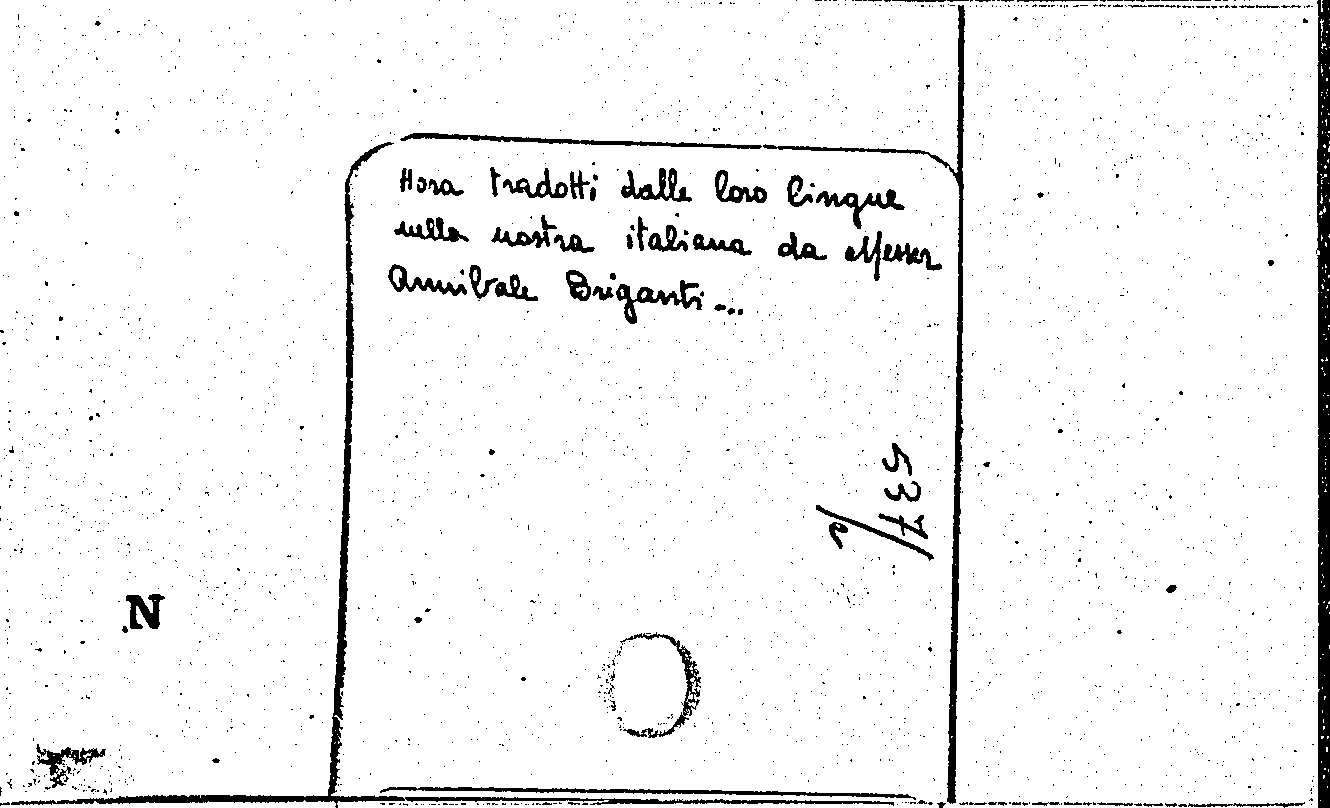 Hora tradotti dalle loro lingue
nella nostra italiana da Messer
Annibale Briganti...
537/2
N